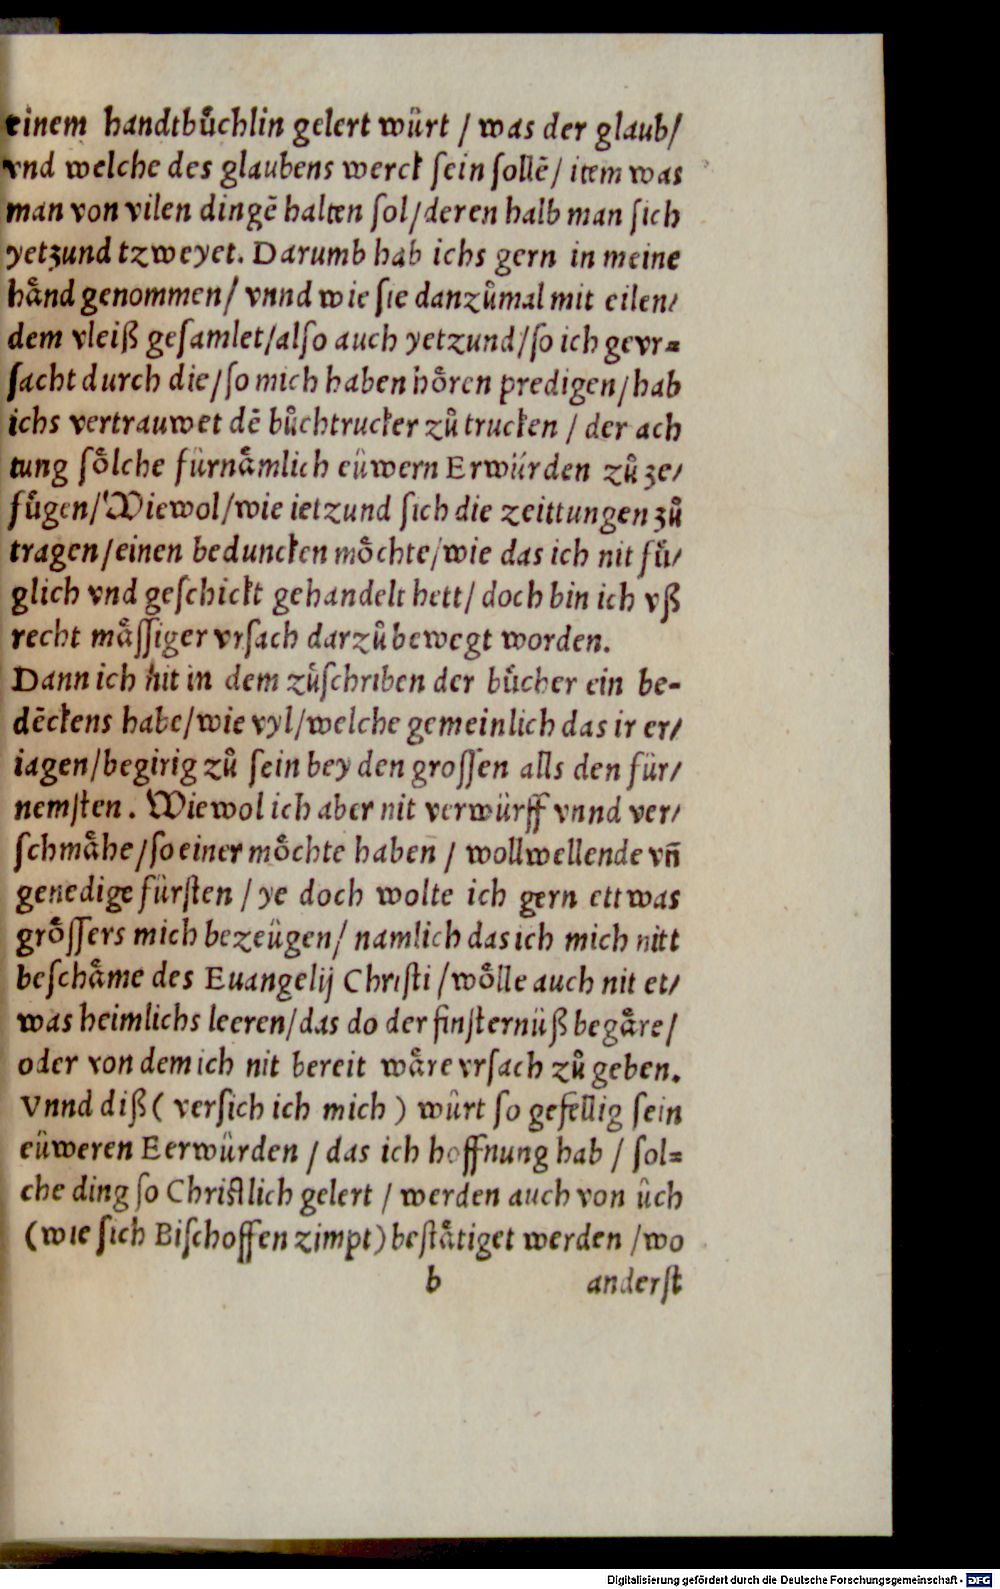 einem handtbuͤchlin gelert wuͤrt / was der glaub/
vnd welche des glaubens werck ſein ſollē/ item was
man von vilen dingē halten ſol/deren halb man ſich
yetzund tzweyet. Darumb hab ichs gern in meine
haͤnd genommen/ vnnd wie ſie danzuͦmal mit eilen/
dem vleiß geſamlet/alſo auch yetzund/ſo ich gevr⸗
ſacht durch die/ſo mich haben hoͤren predigen/hab
ichs vertrauwet dē buͦchtrucker zuͦ trucken / der ach
tung ſoͤlche fürnaͤmlich eüwern Erwürden zuͦ ze/
fuͤgen/Wiewol/wie ietzund ſich die zeittungen zuͦ
tragen/einen beduncken moͤchte/wie das ich nit fuͤ/
glich vnd geſchickt gehandelt hett/ doch bin ich vß
recht maͤſſiger vrſach darzuͦ bewegt worden.
Dann ich nit in dem zuͦſchriben der buͤcher ein be-
dēckens habe/wie vyl/welche gemeinlich das ir er/
iagen/begirig zuͦ ſein bey den groſſen alls den für/
nemſten. Wiewol ich aber nit verwürff vnnd ver/
ſchmaͤhe/ſo einer moͤchte haben / wollwellende vñ
genedige fürſten / ye doch wolte ich gern ettwas
groͤſſers mich bezeügen/ namlich das ich mich nitt
beſchaͤme des Euangelij Chriſti /woͤlle auch nit et/
was heimlichs leeren/das do der finſternüß begaͤre/
oder von dem ich nit bereit waͤre vrſach zuͦ geben.
Vnnd diß ( verſich ich mich ) würt ſo gefellig ſein
eüweren Eerwürden / das ich hoffnung hab / ſol⸗
che ding ſo Chriſtlich gelert / werden auch von üch
(wie ſich Biſchoffen zimpt) beſtaͤtiget werden /wo
b anderſt
Digitalisierung gefördert durch die Deutsche Forschungsgemeinschaft - DFG